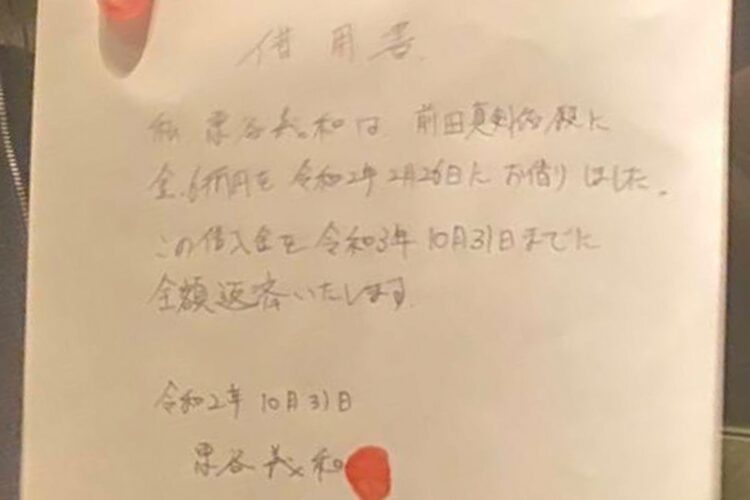 借用書
私 栗谷義和は 前田真剣佑殿に
金、6,000円を 令和2年2月26日にお借りしました。
この借入金を令和3年10月31日までに
全額返済いたします
令和2年10月31日
栗谷義和